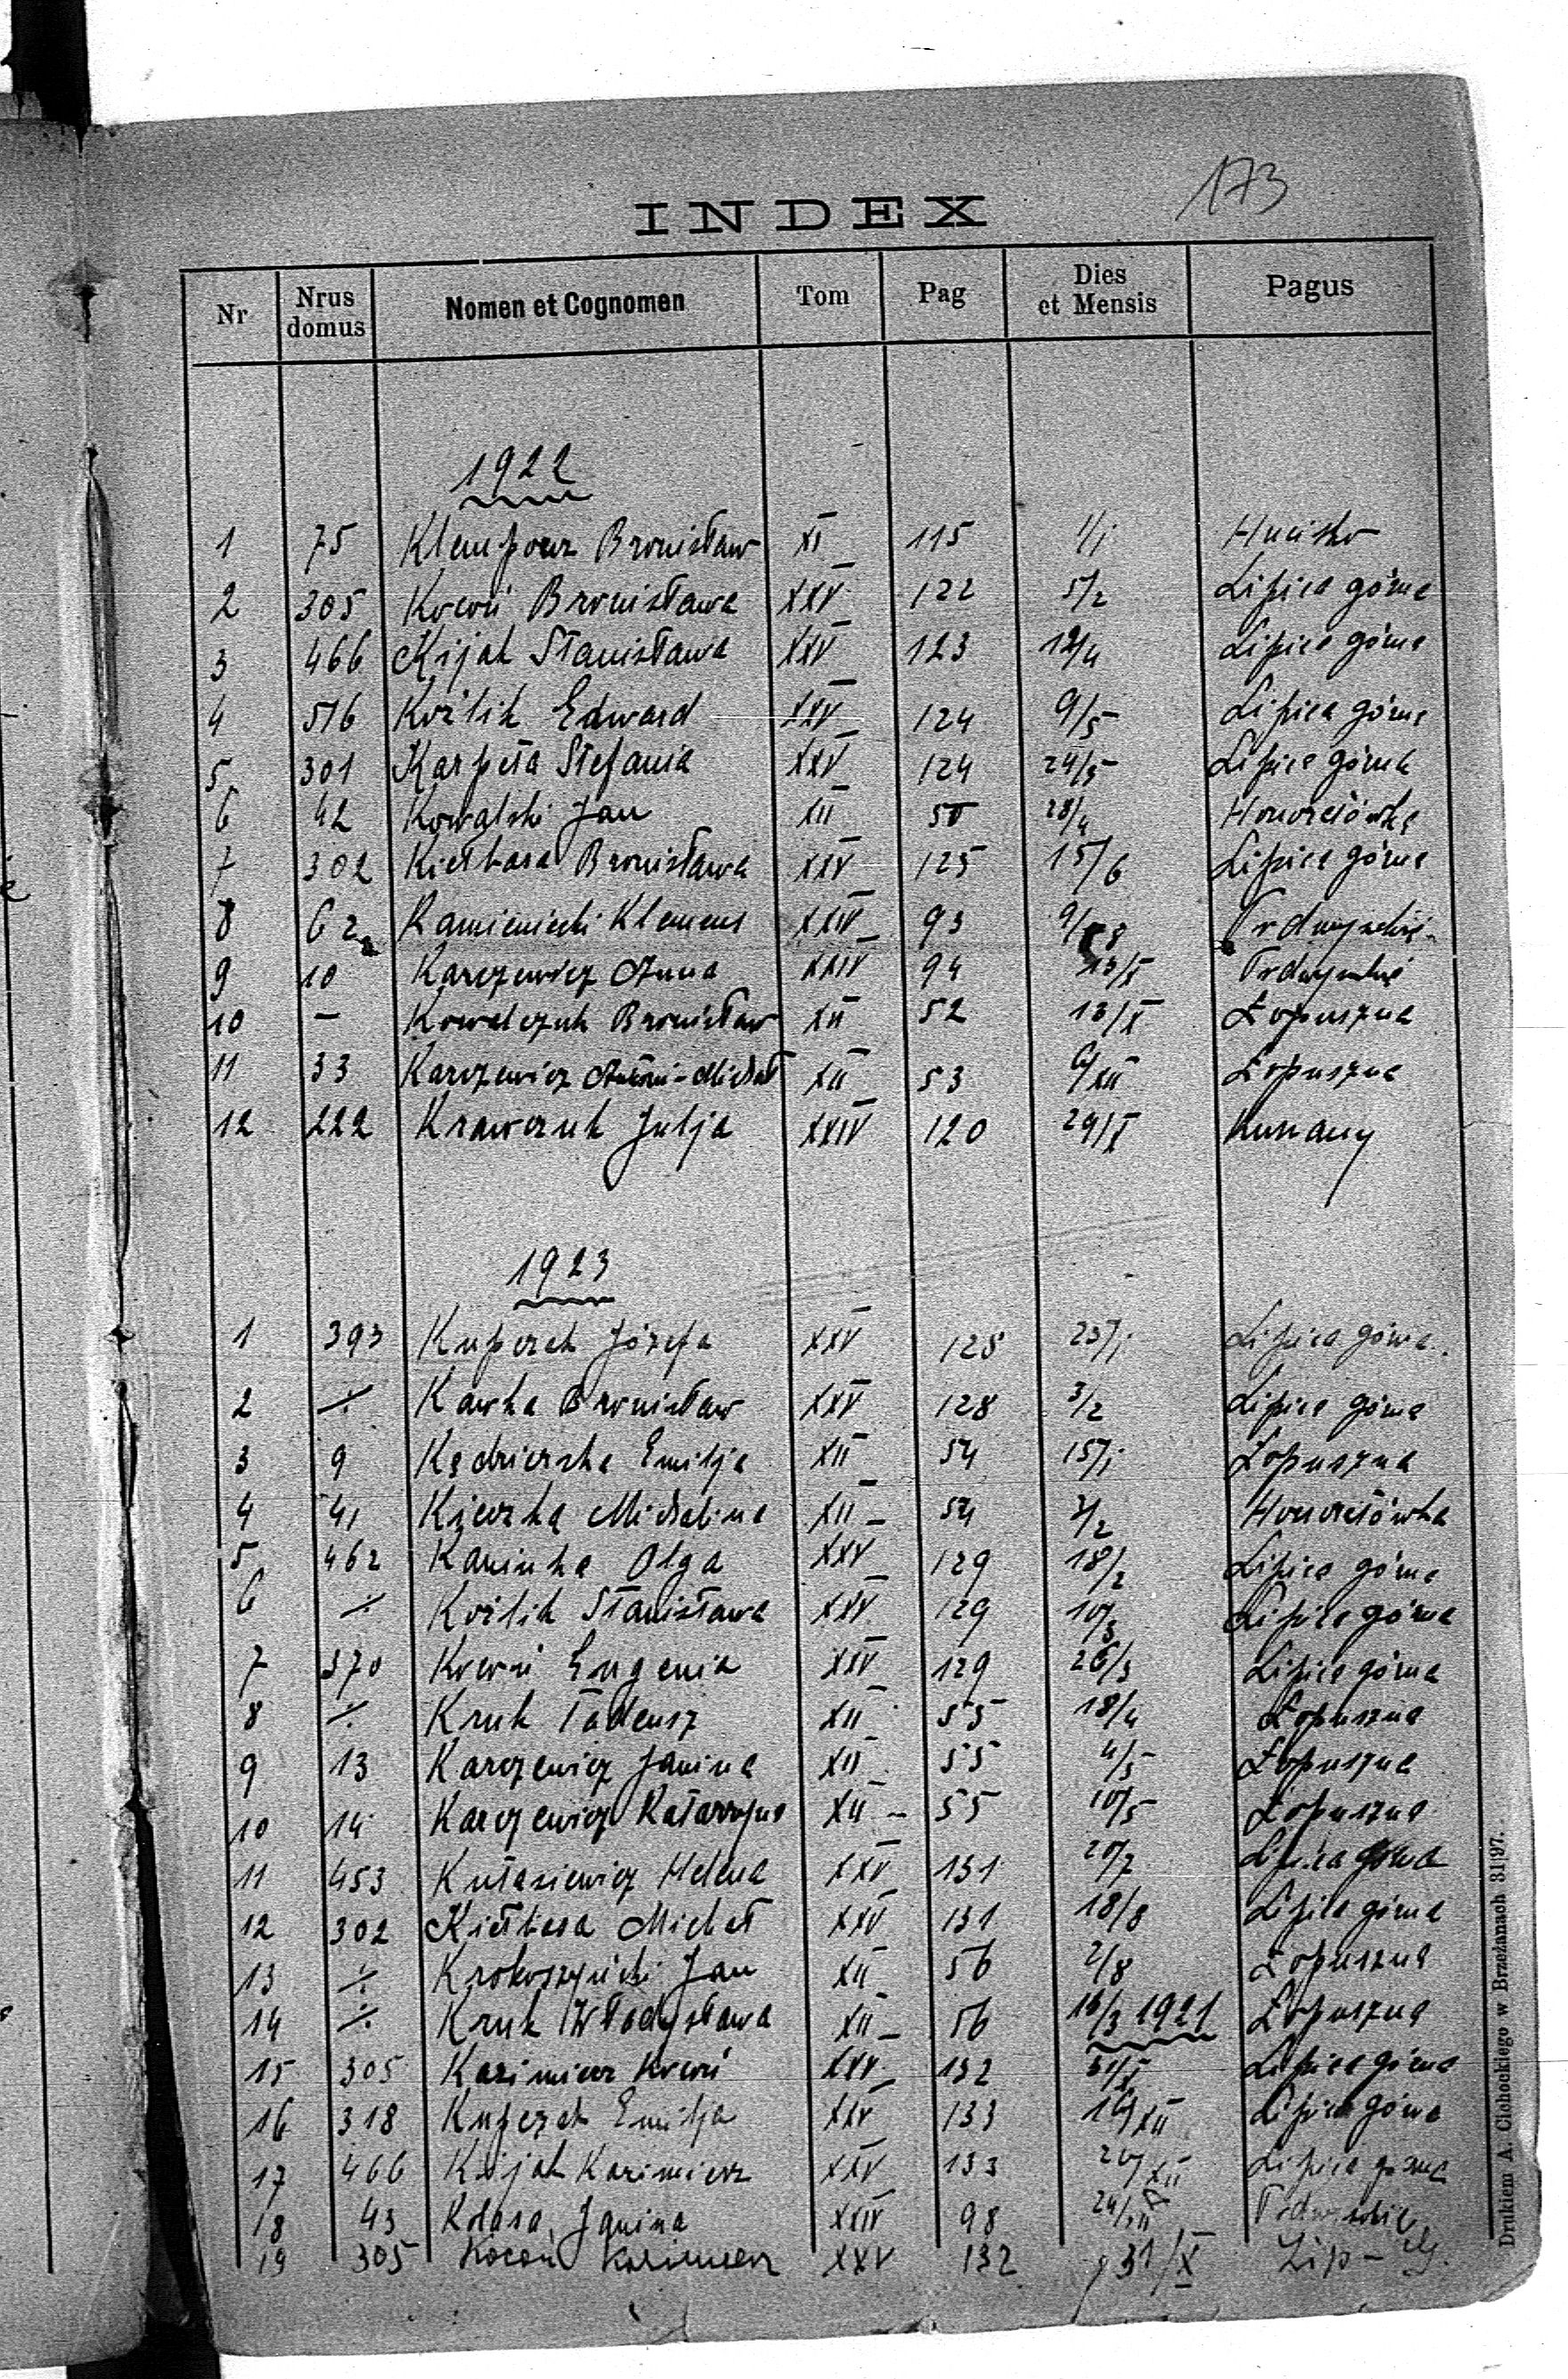 173
INDEX
Nr Nrus domus Nomen et Cognomen Tom Pag Dies et Mensis Pagus
1922
1 75 Klempouz Bronisław XI 115 1/1 Hucisko
2 305 Kocoń Bronisława XXV 122 5/2 Lipica górna
3 466 Kijak Stanisława XXV 123 12/4 Lipica górna
4 516 Koźlik Edward XXV 124 9/5 Lipica górna
5 301 Karpeta Stefania XXV 124 24/5 Lipica górna
6 42 Kowalski Jan XII 50 28/4 Honoratówka
7 302 Kiełbasa Bronisława XXV 125 15/6 Lipica górna
8 62 Kamieniecki Klemens XXIV 93 9/8
9 10 Karczewicz Anna XXIV 94 13/X
10 – Kowalczuk Bronisław XII 52 13/X Łopuszna
11 33 Karczewicz Antoni-Michał XII 53 6/XII Łopuszna
12 222 Krawczuk Julja XXIV 120 29/X Kunany
1923
1 393 Kuperak Józefa XXV 128 23/1 Lipica górna
2 ⁒ Kawka Bronisław XXV 128 3/2 Lipica górna
3 9 Kędzierska Emilja XII 54 15/1 Łopuszna
4 41 Michalina XII 54 2/2 Honoratówka
5 462 Kaminka Olga XXV 129 18/2 Lipica górna
6 ⁒ Koźlik Stanisława XXV 129 10/3 Lipica górna
7 370 Kocoń Eugenia XXV 129 26/3 Lipica górna
8 ⁒ Kruk Tadeusz XII 55 18/4 Łopuszna
9 13 Karczewicz Janina XII 55 4/5 Łopuszna
10 14 Karczewicz Katarzyna XII 55 10/5 Łopuszna
11 453 Kutasiewicz Helena XXV 131 20/7 Lipica górna
12 302 Kiełbasa Michał XXV 131 18/8 Lipica górna
13 ⁒ Krotoszyński Jan XII 56 2/8 Łopuszna
14 ⁒ Kruk Władysława XII 56 16/3 1921 Łopuszna
15 305 Kazimierz Kocoń XXV 132 31/X Lipica górna
16 318 Kuperak Emilja XXV 133 16/XII Lipica górna
17 466 Kijak Kazimierz XXV 133 20/XII Lipica górna
18 43 Kolasa Janina XXIV 98 24/XII
19 305 Kocoń Kazimierz XXV 132 31/X Lip – g.
Drukiem A. Cichockiego w Brzeżanach 31|97.